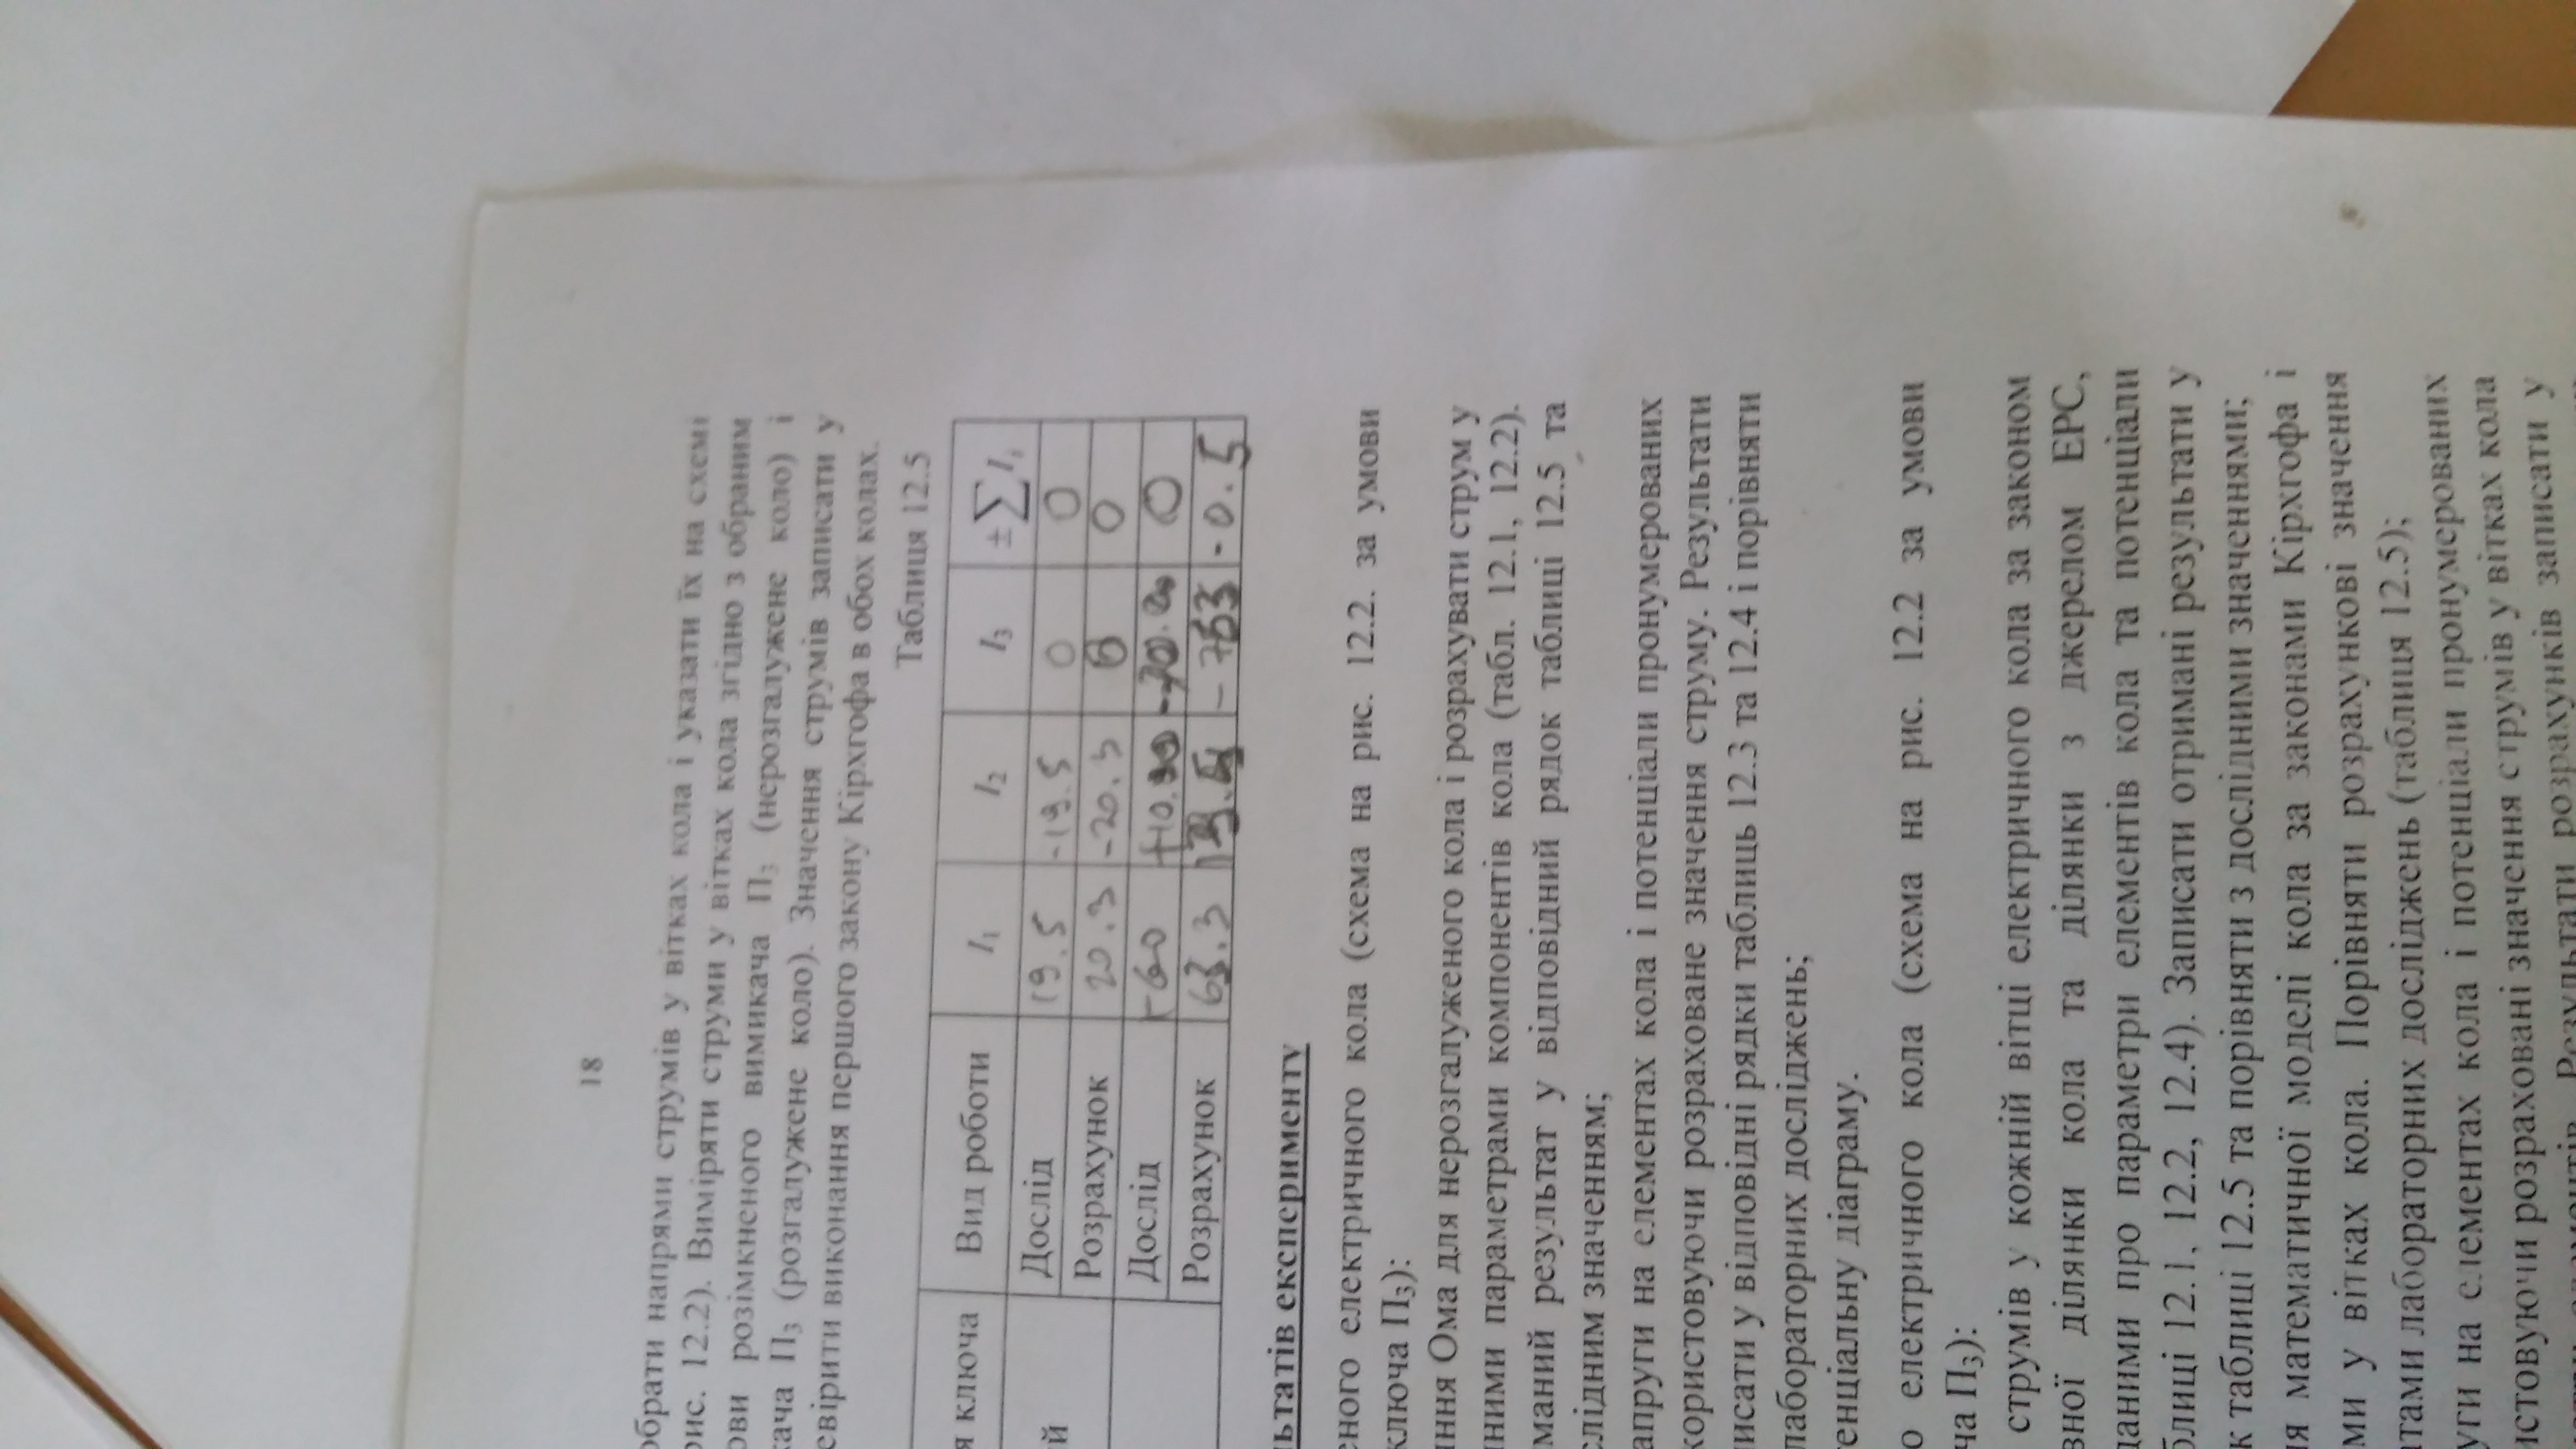 18
обрати напрями струмів у вітках кола і указати їх на схемі
рис. 12.2). Виміряти струми у вітках кола згідно з обраним
ови розімкненого вимикача П₃ (нерозгалужене коло) і
кача П₃ (розгалужене коло). Значення струмів записати у
евірити виконання першого закону Кірхгофа в обох колах.
Таблиця 12.5
я ключа Вид роботи I₁ I₂ I₃ ±∑Iᵢ
й Дослід 19.5 -19.5 0 0
Розрахунок 20.3 -20.3 0 0
Дослід -60 0
Розрахунок 63.3 -0.5
льтатів експерименту
еного електричного кола (схема на рис. 12.2. за умови
ключа П₃):
яння Ома для нерозгалуженого кола і розрахувати струм у
нними параметрами компонентів кола (табл. 12.1, 12.2).
маний результат у відповідний рядок таблиці 12.5 та
слідним значенням;
апруги на елементах кола і потенціали пронумерованих
користовуючи розраховане значення струму. Результати
писати у відповідні рядки таблиць 12.3 та 12.4 і порівняти
лабораторних досліджень;
тенціальну діаграму.
о електричного кола (схема на рис. 12.2 за умови
ча П₃):
струмів у кожній вітці електричного кола за законом
вної ділянки кола та ділянки з джерелом ЕРС,
даними про параметри елементів кола та потенціали
блиці 12.1, 12.2, 12.4). Записати отримані результати у
к таблиці 12.5 та порівняти з дослідними значеннями;
ня математичної моделі кола за законами Кірхгофа і
ми у вітках кола. Порівняти розрахункові значення
тами лабораторних досліджень (таблиця 12.5);
уги на елементах кола і потенціали пронумерованих
истовуючи розраховані значення струмів у вітках кола
Результати розрахунків записати у